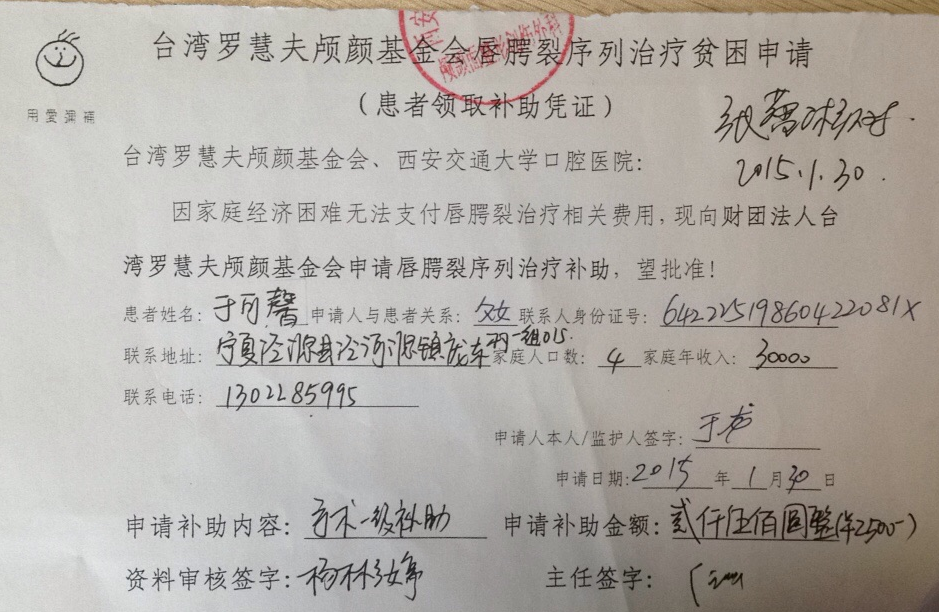 台湾罗慧夫颅颜基金会唇腭裂序列治疗贫困申请
用愛彌補
（患者领取补助凭证）
2015.1.30.
台湾罗慧夫颅颜基金会、西安交通大学口腔医院：
因家庭经济困难无法支付唇腭裂治疗相关费用，现向财团法人台
湾罗慧夫颅颜基金会申请唇腭裂序列治疗补助，望批准！
患者姓名：于可馨 申请人与患者关系：父女 联系人身份证号：64222519860422081X
联系地址：宁夏泾源县泾河源镇龙东 一组015 家庭人口数：4 家庭年收入：30000
联系电话：1302285995
申请人本人/监护人签字：于龙
申请日期：2015年1月30日
申请补助内容：手术一级补助 申请补助金额：贰仟伍佰圆整(¥2500-)
资料审核签字：杨林 婷 主任签字：